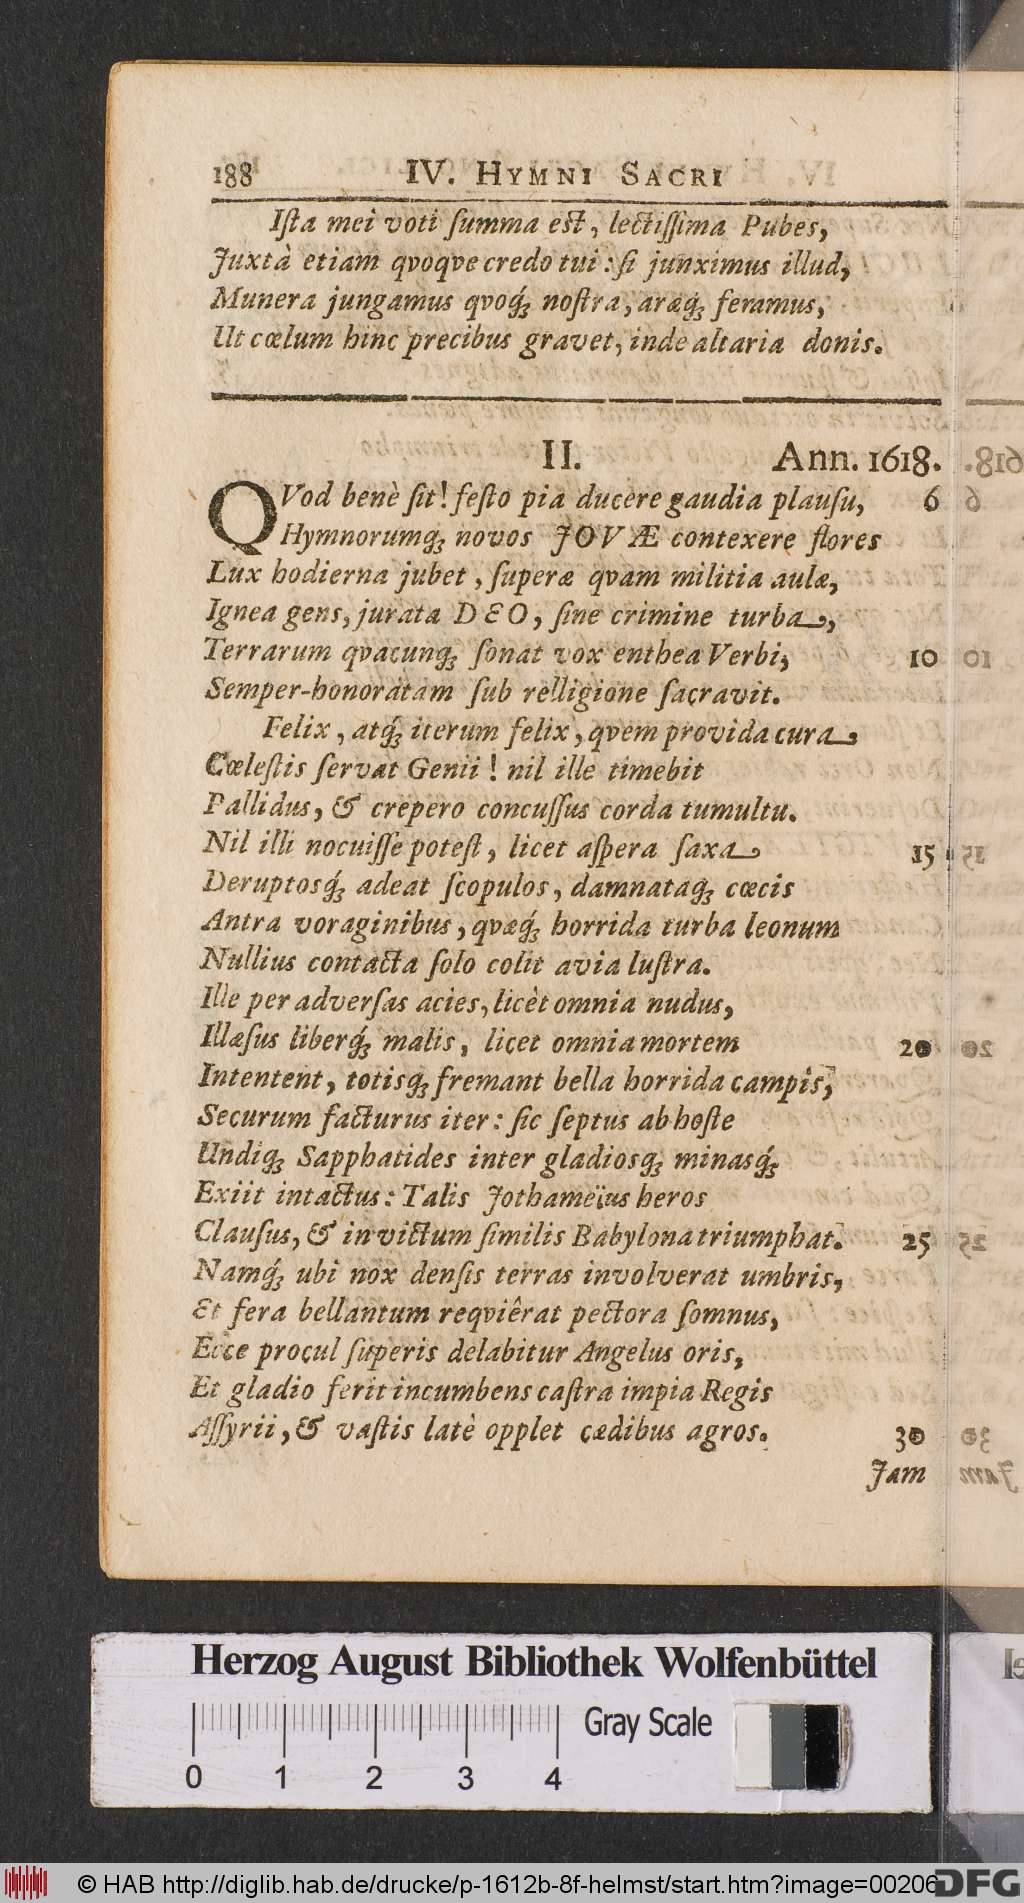 188 IV. HYMNI SACRI
Iſta mei voti ſumma eſt, lectiſſima Pubes,
Juxtà etiam qvoqve credo tui: ſi junximus illud,
Munera jungamus qvoq́; noſtra, aræq́; feramus,
Ut cœlum hinc precibus gravet, inde altaria donis.
II. Ann. 1618.
QVod benè ſit! feſto pia ducere gaudia plauſu, 6
Hymnorumq; novos JOVÆ contexere flores
Lux hodierna jubet, ſuperæ qvam militia aulæ,
Ignea gens, jurata DEO, ſine crimine turba,
Terrarum qvacunq; ſonat vox enthea Verbi, 10
Semper-honoratam ſub relligione ſacravit.
Felix, atq́; iterum felix, qvem provida cura,
Cœleſtis ſervat Genii! nil ille timebit
Pallidus, & crepero concuſſus corda tumultu.
Nil illi nocuiſſe poteſt, licet aſpera ſaxa 15
Deruptosq́; adeat ſcopulos, damnataq; cœcis
Antra voraginibus, qvæq́; horrida turba leonum
Nullius contacta ſolo colit avia luſtra.
Ille per adverſas acies, licèt omnia nudus,
Illæſus liberq́; malis, licet omnia mortem 20
Intentent, totisq; fremant bella horrida campis,
Securum facturus iter: ſic ſeptus ab hoſte
Undiq; Sapphatides inter gladiosq; minasq́;
Exiit intactus: Talis Jothameïus heros
Clauſus, & invictum ſimilis Babylona triumphat. 25
Namq́; ubi nox denſis terras involverat umbris,
Et fera bellantum reqviêrat pectora ſomnus,
Ecce procul ſuperis delabitur Angelus oris,
Et gladio ferit incumbens caſtra impia Regis
Aſſyrii, & vaſtis latè opplet cædibus agros. 30
Jam
Herzog August Bibliothek Wolfenbüttel
Gray Scale
0 1 2 3 4
© HAB http://diglib.hab.de/drucke/p-1612b-8f-helmst/start.htm?image=00206
DFG